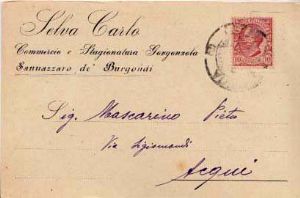 Selva Carlo
Commercio e Stagionatura Gorgonzola
Sannazzaro de' Burgondi
Sig. Mascarino Pietro
Via Sigismondi
Acqui